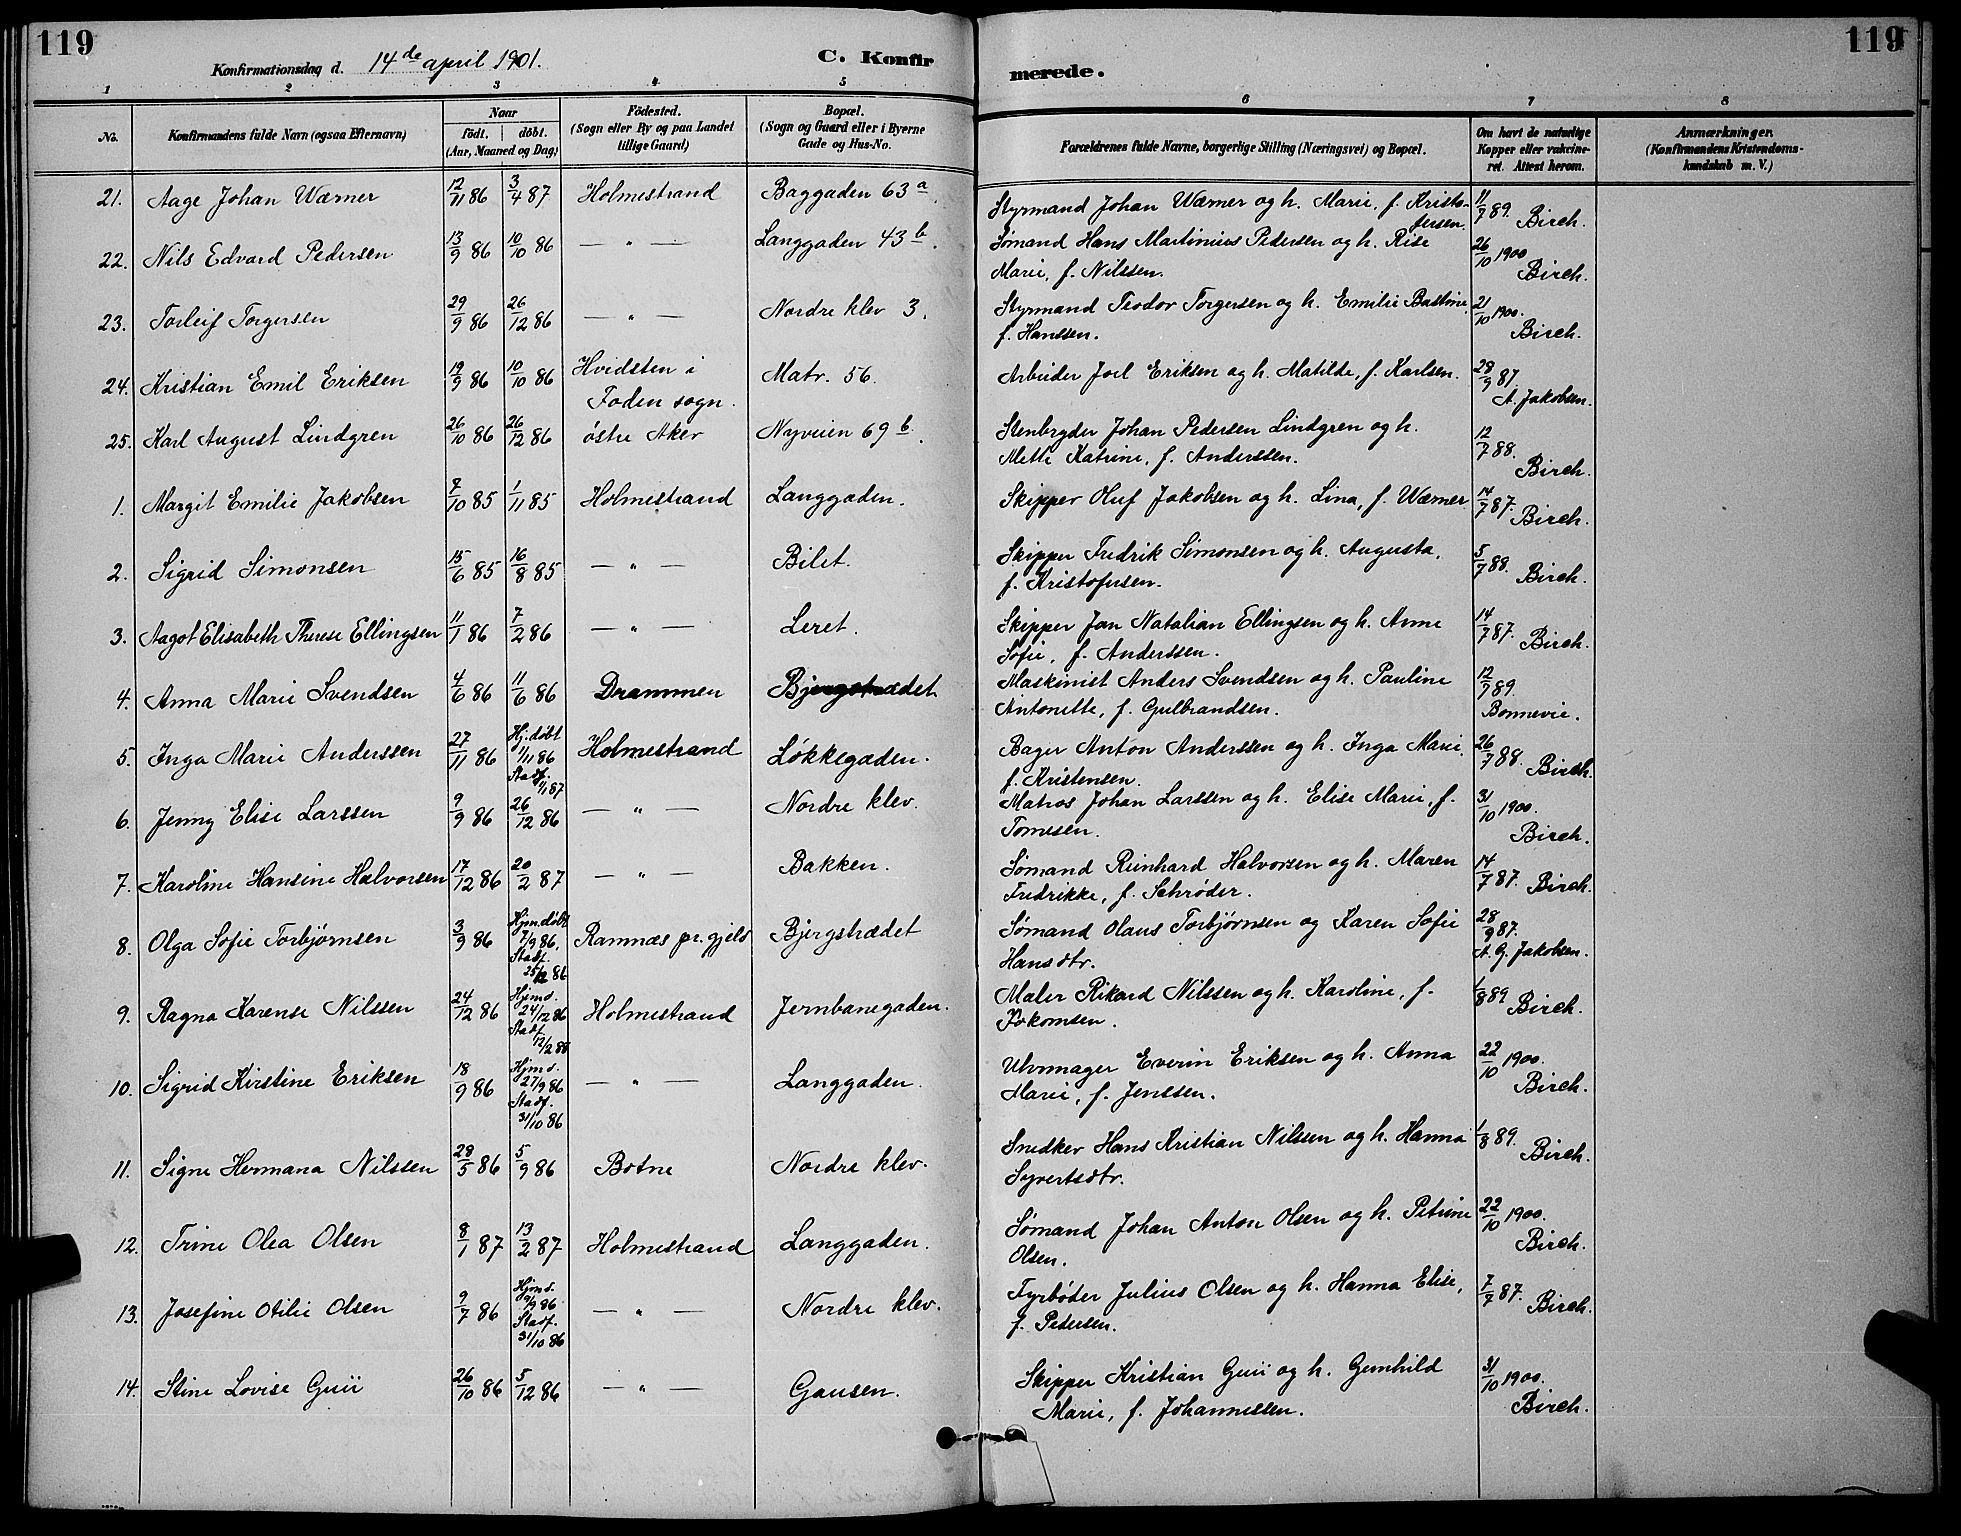 119
Konfirmationsdag d. 14de april 1901.
C. Konfirmerede.
119
1 2 3 4 5 6 7 8
No.
Konfirmandens fulde Navn (ogsaa Efternavn)
Naar
födt. | döbt.
(Aar, Maaned og Dag)
Födested.
(Sogn eller By og paa Landet
tillige Gaard)
Bopæl.
(Sogn og Gaard eller i Byerne
Gade og Hus-No.
Forældrenes fulde Navne, borgerlige Stilling (Næringsvei) og Bopæl.
Om havt de naturlige
Kopper eller vakcine-
ret. Attest herom.
Anmærkninger.
(Konfirmandens Kristendoms-
kundskab m. V.)
21. Aage Johan Wærner 12/11 86 3/4 87 Holmestrand Baggaden 63 a. Styrmand Johan Wærner og h. Marie, f. Kristo- 11/7 89. Birch.
fersen.
22. Nils Edvard Pedersen 13/9 86 10/10 86 — „ — Langgaden 43 b. Sømand Hans Martinius Pedersen og h. Rise 26/10 1900
Marie, f. Nilssen. Birch.
23. Torleif Torgersen 29/9 86 26/12 86 — „ — Nordre klev 3. Styrmand Teodor Torgersen og h. Emilie Bastine, 21/10 1900.
f. Hanssen. Birch.
24. Kristian Emil Eriksen 19/9 86 10/10 86 Hvidsten i Matr. 56. Arbeider Joel Eriksen og h. Matilde, f. Karlsen. 28/9 87.
Foden sogn. A. Jakobsen.
25. Karl August Lindgren 26/10 86 26/12 86 østre Aker Nyveien 69 b. Stenbryder Johan Pedersen Lindgren og h. 12/7 88.
Mette Katrine, f. Anderssen. Birch.
1. Margit Emilie Jakobsen 7/10 85 1/11 85 Holmestrand Langgaden. Skipper Oluf Jakobsen og h. Lina, f. Wærner 14/7 87. Birch.
2. Sigrid Simonsen 15/6 85 16/8 85 — „ — Bilet. Skipper Fredrik Simonsen og h. Augusta, 5/7 88. Birch.
f. Kristofersen.
3. Aagot Elisabeth Therese Ellingsen 11/1 86 7/2 86 — „ — Leret. Skipper Jan Natalian Ellingsen og h. Anne 14/7 87. Birch.
Sofie, f. Anderssen.
4. Anna Marie Svendsen 4/6 86 11/6 86 Drammen Bjergstrædet Maskinist Anders Svendsen og h. Pauline 12/9 89.
Antonette, f. Gulbrandsen. Bonnevie.
5. Inga Marie Anderssen 27/11 86 Hj. døbt 1/11 86 Stadf. 1/1 87 Holmestrand Løkkegaden. Bager Anton Anderssen og h. Inga Marie, 26/7 88. Birch.
f. Kristensen.
6. Jenny Elise Larssen 9/9 86 26/12 86 — „ — Nordre klev. Matros Johan Larssen og h. Elise Marie, f. 31/10 1900.
Tomesen. Birch.
7. Karoline Hansine Halvorsen 17/12 86 20/2 87 — „ — Bakken. Sømand Reinhard Halvorsen og h. Maren 14/7 87. Birch.
Fredrikke, f. Schrøder.
8. Olga Sofie Torbjørnsen 3/9 86 Hjemdøbt 7/9 86, Stadf. 25/12 86 Ramnæs pr. gjeld Bjergstrædet Sømand Olaus Torbjørnsen og Karen Sofie 28/9 87.
Hansdtr. A. G. Jakobsen.
9. Ragna Karense Nilssen 24/12 86 Hjmd. 24/12 86 Stadf. 12/2 88 Holmestrand Jernbanegaden. Maler Rikard Nilssen og h. Karoline, f. 1/8 89 Birch.
10. Sigrid Kirstine Eriksen 18/9 86 Hjmd. 27/9 86 Stadf. 31/10 86 — „ — Langgaden. Uhrmager Everin Eriksen og h. Anna 22/10 1900.
Marie, f. Jenssen. Birch.
11. Signe Hermana Nilssen 28/5 86 5/9 86 Botne Nordre klev. Snedker Hans Kristian Nilssen og h. Hanna 1/8 89. Birch.
Syvertsdtr.
12. Trine Olea Olsen 8/1 87 13/2 87 Holmestrand Langgaden. Sømand Johan Anton Olsen og h. Petrine 22/10 1900.
Olsen. Birch.
13. Josefine Otilie Olsen 9/7 86 Hjmd. 9/9 86 Stadf. 31/10 86 — „ — Nordre klev. Fyrbøder Julius Olsen og h. Hanna Elise, 7/7 87. Birch.
f. Pedersen.
14. Stine Lovise Guii 26/10 86 5/12 86 — „ — Gausen. Skipper Kristian Guii og h. Gunhild 31/10 1900.
Marie, f. Johannessen. Birch.